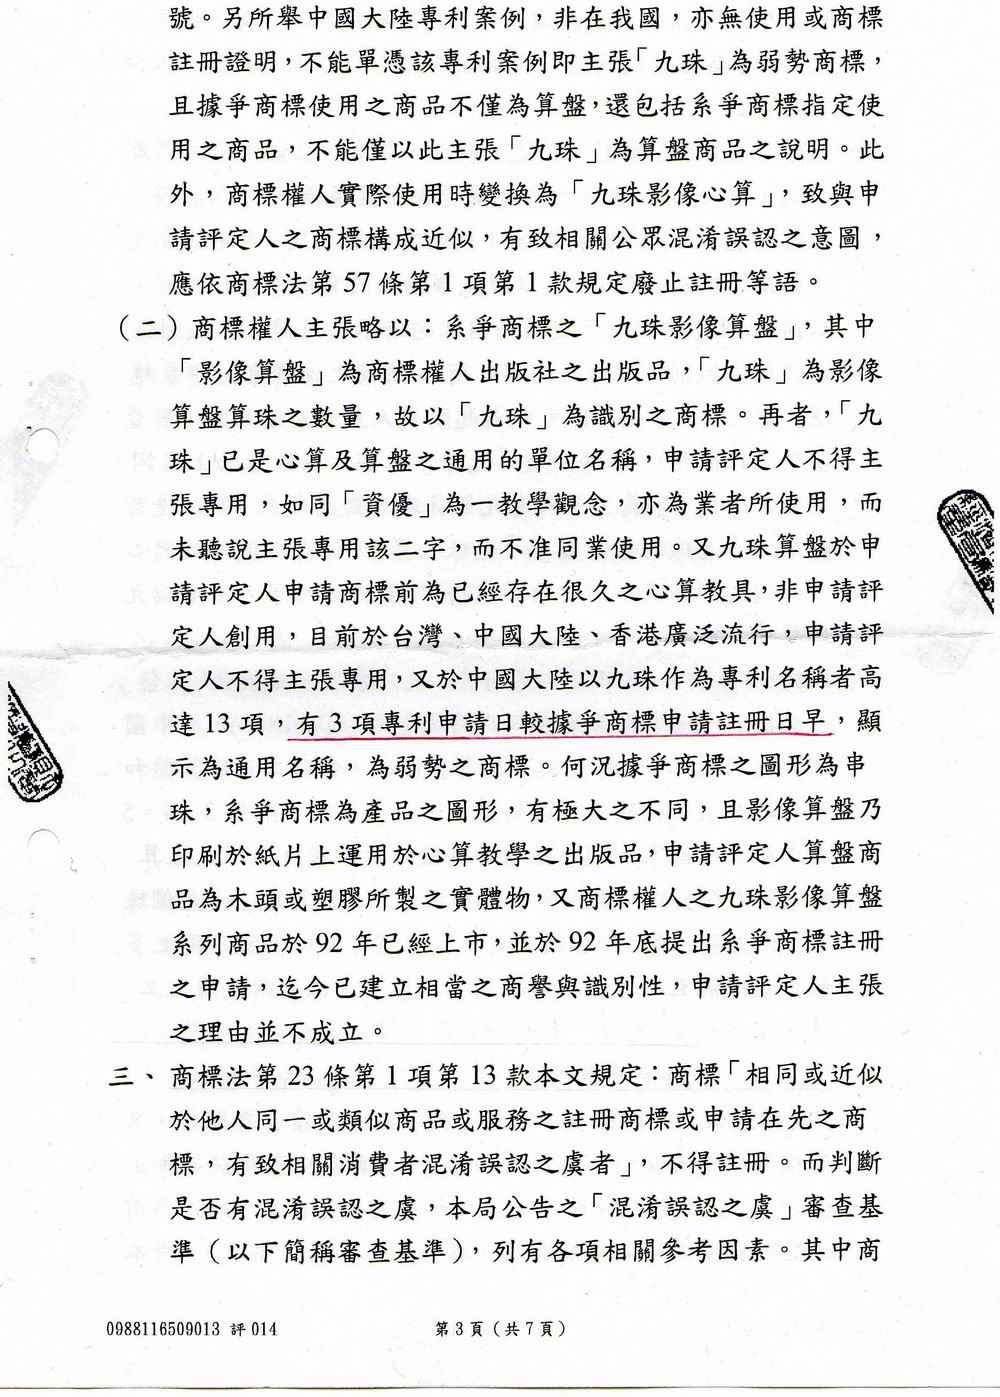 號。另所舉中國大陸專利案例，非在我國，亦無使用或商標
註冊證明，不能單憑該專利案例即主張「九珠」為弱勢商標，
且據爭商標使用之商品不僅為算盤，還包括系爭商標指定使
用之商品，不能僅以此主張「九珠」為算盤商品之說明。此
外，商標權人實際使用時變換為「九珠影像心算」，致與申
請評定人之商標構成近似，有致相關公眾混淆誤認之意圖，
應依商標法第 57 條第 1 項第 1 款規定廢止註冊等語。
（二）商標權人主張略以：系爭商標之「九珠影像算盤」，其中
「影像算盤」為商標權人出版社之出版品，「九珠」為影像
算盤算珠之數量，故以「九珠」為識別之商標。再者，「九
珠」已是心算及算盤之通用的單位名稱，申請評定人不得主
張專用，如同「資優」為一教學觀念，亦為業者所使用，而
未聽說主張專用該二字，而不准同業使用。又九珠算盤於申
請評定人申請商標前為已經存在很久之心算教具，非申請評
定人創用，目前於台灣、中國大陸、香港廣泛流行，申請評
定人不得主張專用，又於中國大陸以九珠作為專利名稱者高
達 13 項，有 3 項專利申請日較據爭商標申請註冊日早，顯
示為通用名稱，為弱勢之商標。何況據爭商標之圖形為串
珠，系爭商標為產品之圖形，有極大之不同，且影像算盤乃
印刷於紙片上運用於心算教學之出版品，申請評定人算盤商
品為木頭或塑膠所製之實體物，又商標權人之九珠影像算盤
系列商品於 92 年已經上市，並於 92 年底提出系爭商標註冊
之申請，迄今已建立相當之商譽與識別性，申請評定人主張
之理由並不成立。
三、商標法第 23 條第 1 項第 13 款本文規定：商標「相同或近似
於他人同一或類似商品或服務之註冊商標或申請在先之商
標，有致相關消費者混淆誤認之虞者」，不得註冊。而判斷
是否有混淆誤認之虞，本局公告之「混淆誤認之虞」審查基
準（以下簡稱審查基準），列有各項相關參考因素。其中商
0988116509013 評 014
第 3 頁（共 7 頁）